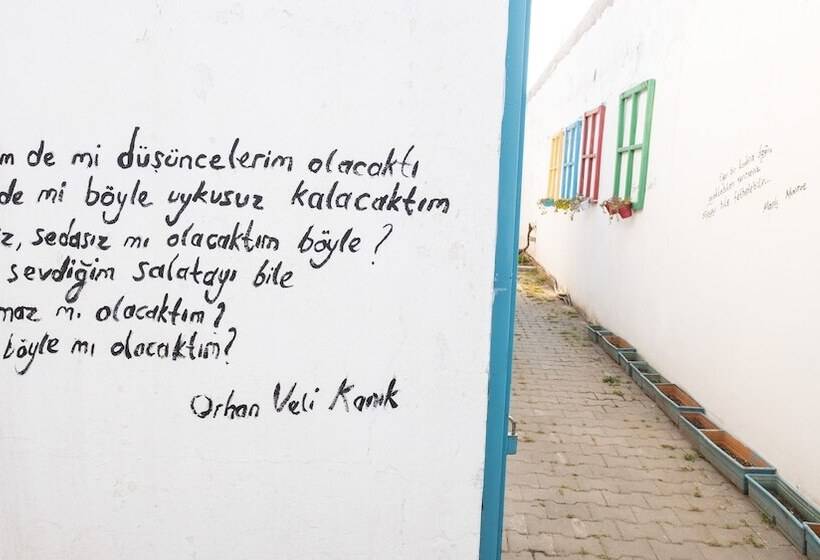 m de mi düşüncelerim olacaktı
de mi böyle uykusuz kalacaktım
iz, sedasız mı olacaktım böyle?
sevdiğim salatayı bile
maz mı olacaktım?
böyle mi olacaktım?
Orhan Veli Kanık
bir kadın